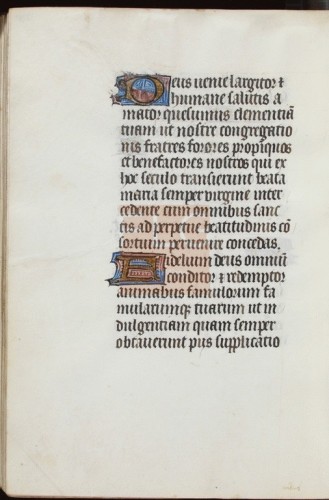 Deus venie largitor et
humane salutis a
mator quesumus clementiā
tuam ut nostre congregatio
nis fratres sorores propiquos
et benefactores nostros qui ex
hoc seculo transierunt beata
maria semper virgine inter
cedente cum omnibus sanc
tis ad perpetue beatitudinis cō
sortium pervenire concedas.
Fidelium deus omniū
conditor et redemptor
animabus famulorum fa
mularumq; tuarum ut in
dulgentiam quam semper
obtaverunt piis supplicatio